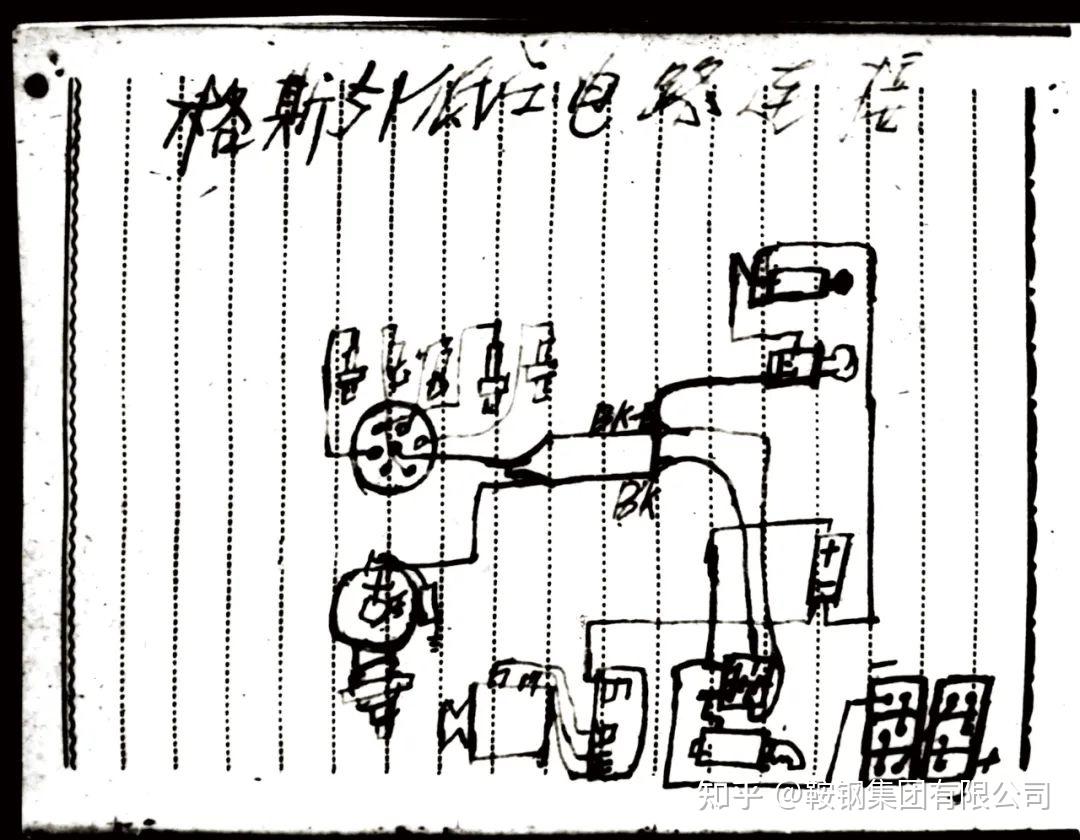 格斯外低压电路连接
BK-B
BK
知乎 @鞍钢集团有限公司